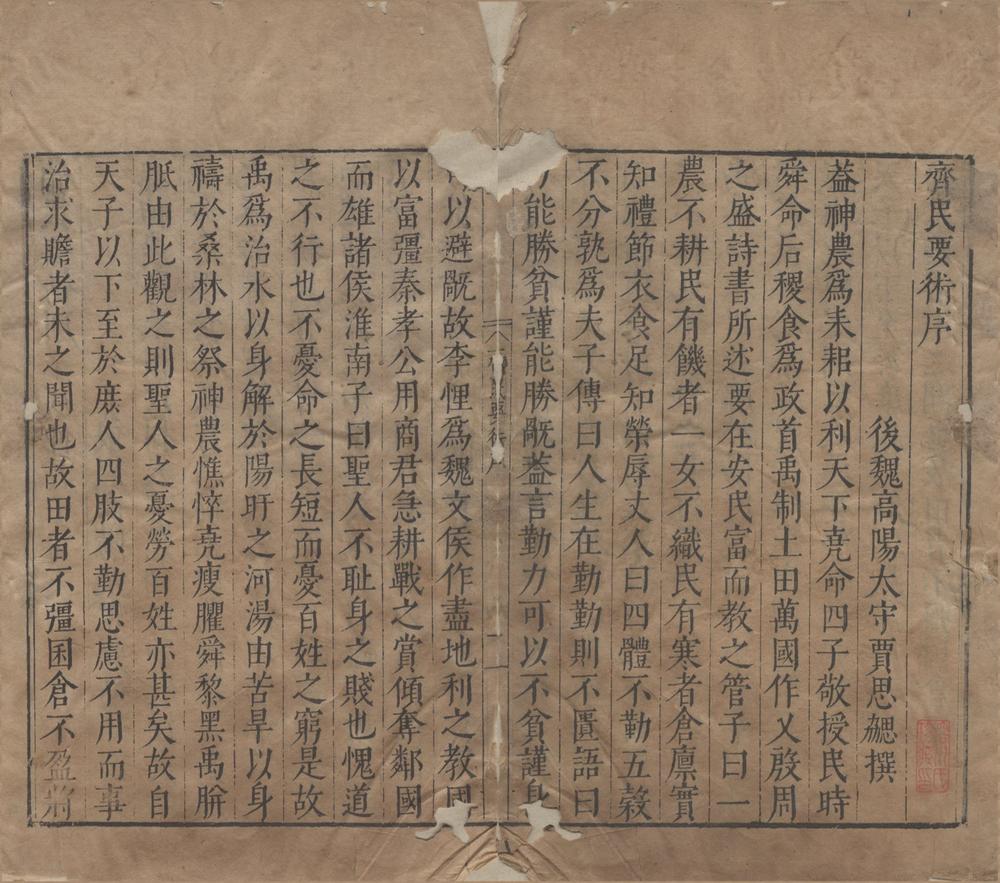 齊民要術序
後魏高陽太守賈思勰撰
葢神農爲耒耜以利天下堯命四子敬授民時
舜命后稷食爲政首禹制土田萬國作乂殷周
之盛詩書所述要在安民富而教之管子曰一
農不耕民有饑者一女不織民有寒者倉廩實
知禮節衣食足知榮辱丈人曰四體不勤五穀
不分孰爲夫子傳曰人生在勤勤則不匱語曰
能勝貧謹能勝旤葢言勤力可以不貧謹身
以避旤故李悝爲魏文侯作盡地利之教國
以富彊秦孝公用商君急耕戰之賞傾奪鄰國
而雄諸侯淮南子曰聖人不耻身之賤也愧道
之不行也不憂命之長短而憂百姓之窮是故
禹爲治水以身解於陽盱之河湯由苦旱以身
禱於桑林之祭神農憔悴堯瘦臞舜黎黑禹胼
胝由此觀之則聖人之憂勞百姓亦甚矣故自
天子以下至於庶人四肢不勤思慮不用而事
治求贍者未之聞也故田者不彊囷倉不盈將